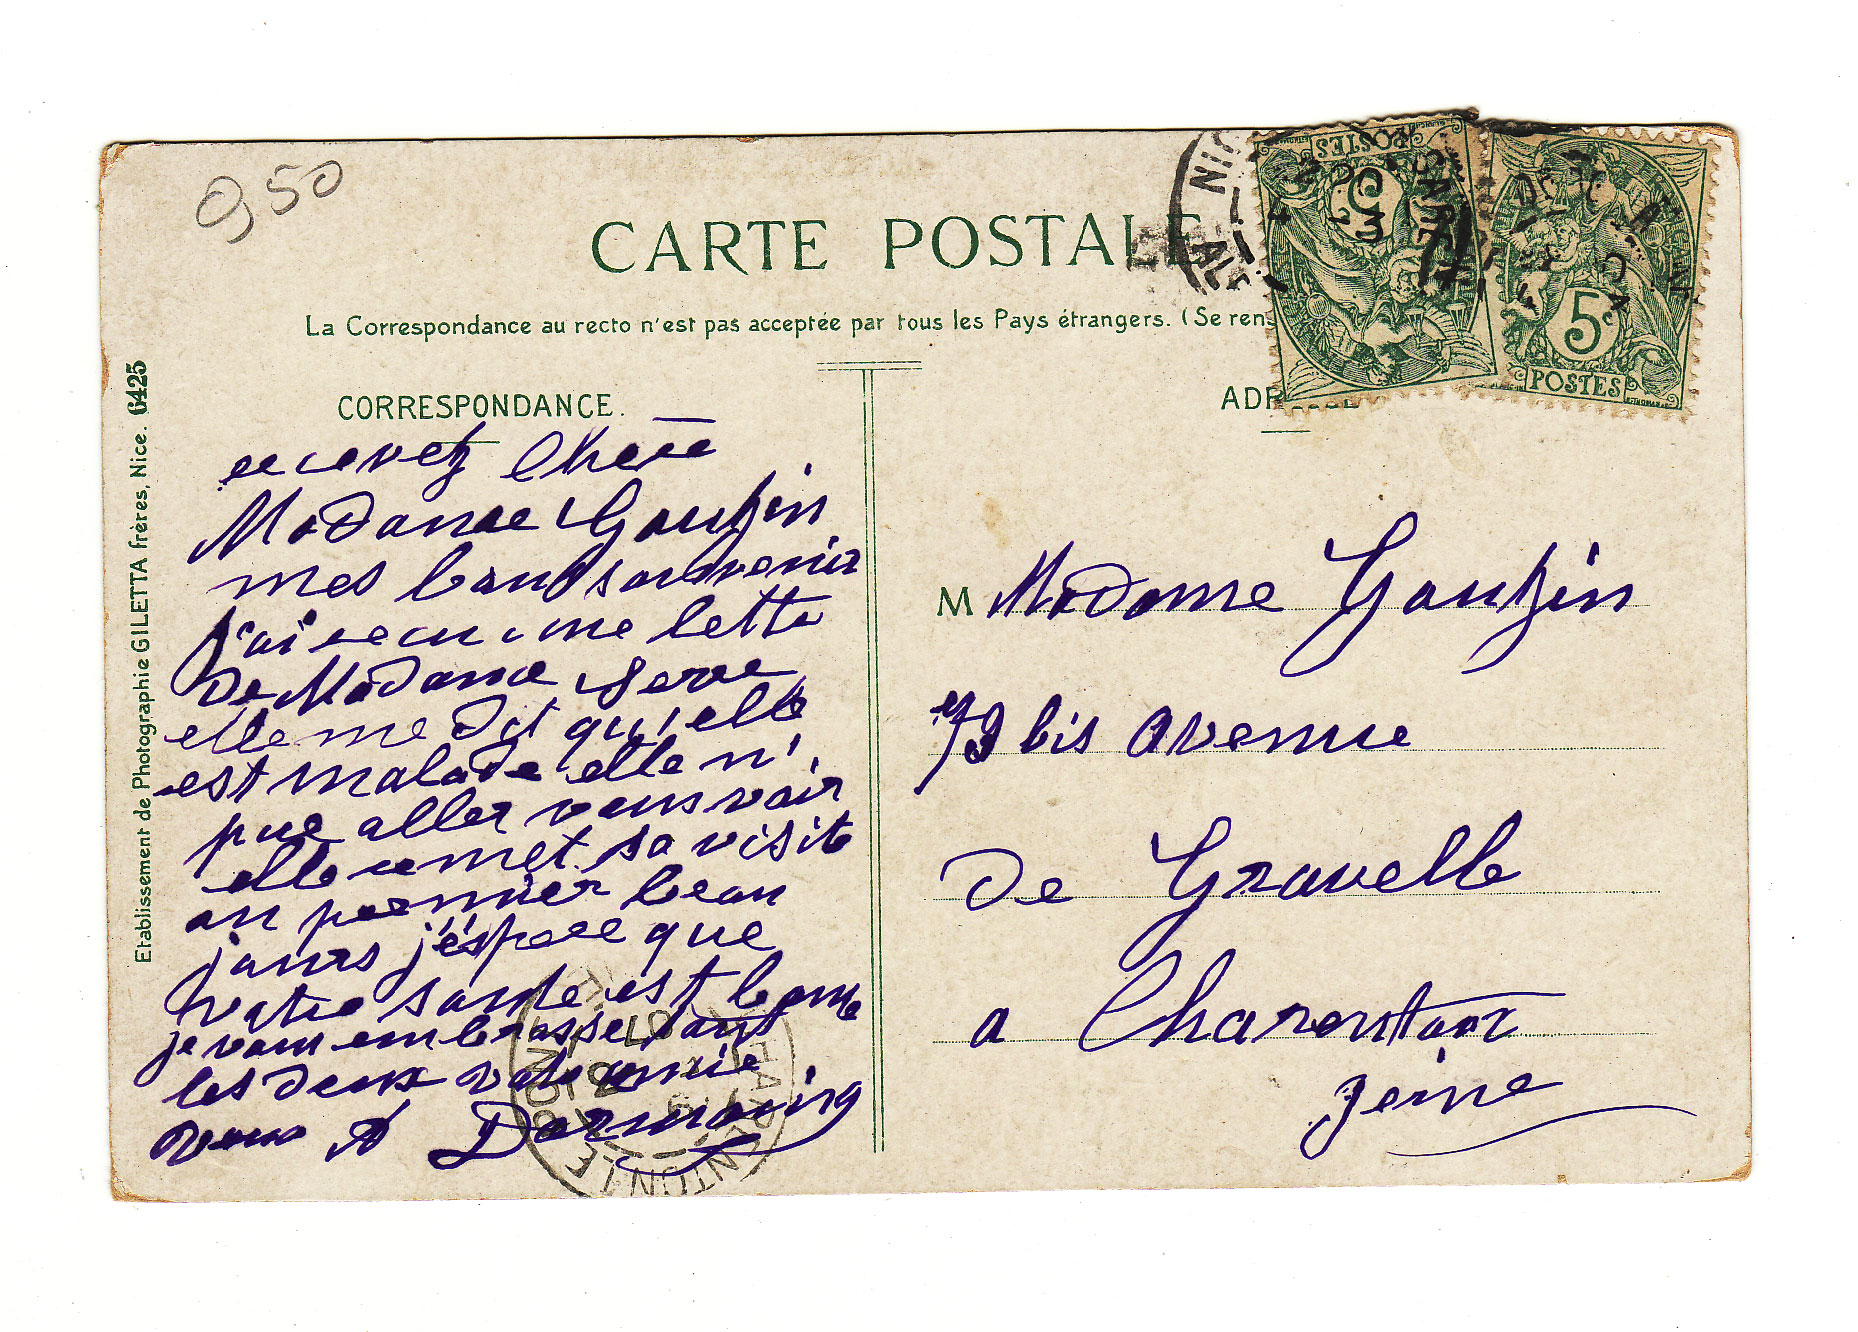 9,50
CARTE POSTALE
La Correspondance au recto n'est pas acceptée par tous les Pays étrangers. (Se rens
CORRESPONDANCE.
recevez Chère
Madame Gouzin
mes bons souvenir
j'ai recu une lettre
De Madame
elle me dit qu'elle
est malade elle n'
pue aller vous voir
elle remet sa visite
au premier beau
jours j'éspere que
votre sante est bonne
je vous embrasse tous
les deux votre amie
A
Etablissement de Photographie GILETTA frères, Nice. 6425
NICE
GARE
POSTES
5
5c
POSTES
ADR
M Madame Gouzin
79 bis Avenue
De Gravelle
a Charenton
Seine
CHARENTON LE PONT